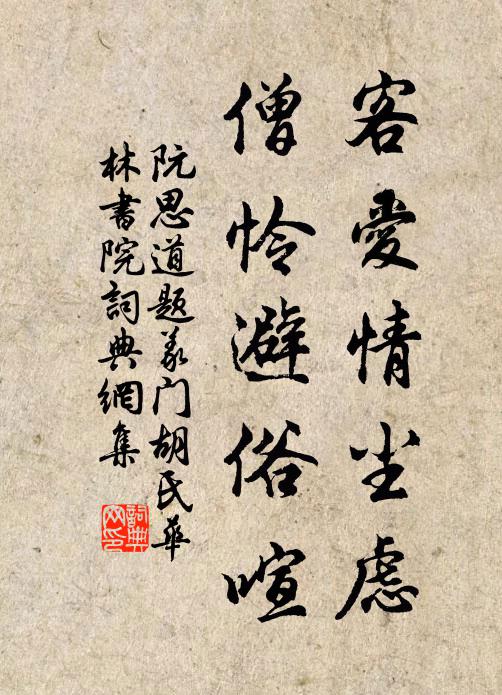 客愛情尘慮
僧怜避俗喧
阮思道题义门胡氏華
林書院詞典網集
詞典网印